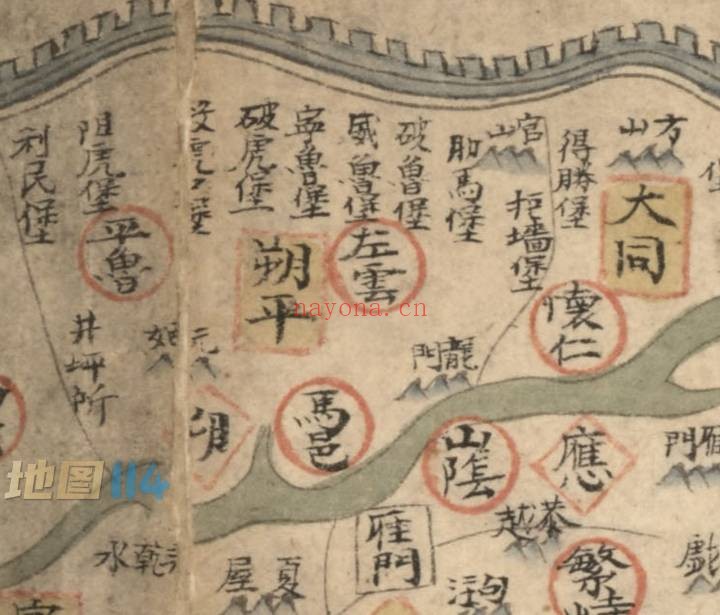 利民堡
阻虎堡
平魯
井坪所
破虎堡
朔平
威魯堡
左雲
破魯堡
助馬堡
官山
拒墻堡
得勝堡
方山
大同
堡
懷仁
龍門
馬邑
山陰
應
門
雁門
夏屋
乾
水
繁
nayona.cn
地图114